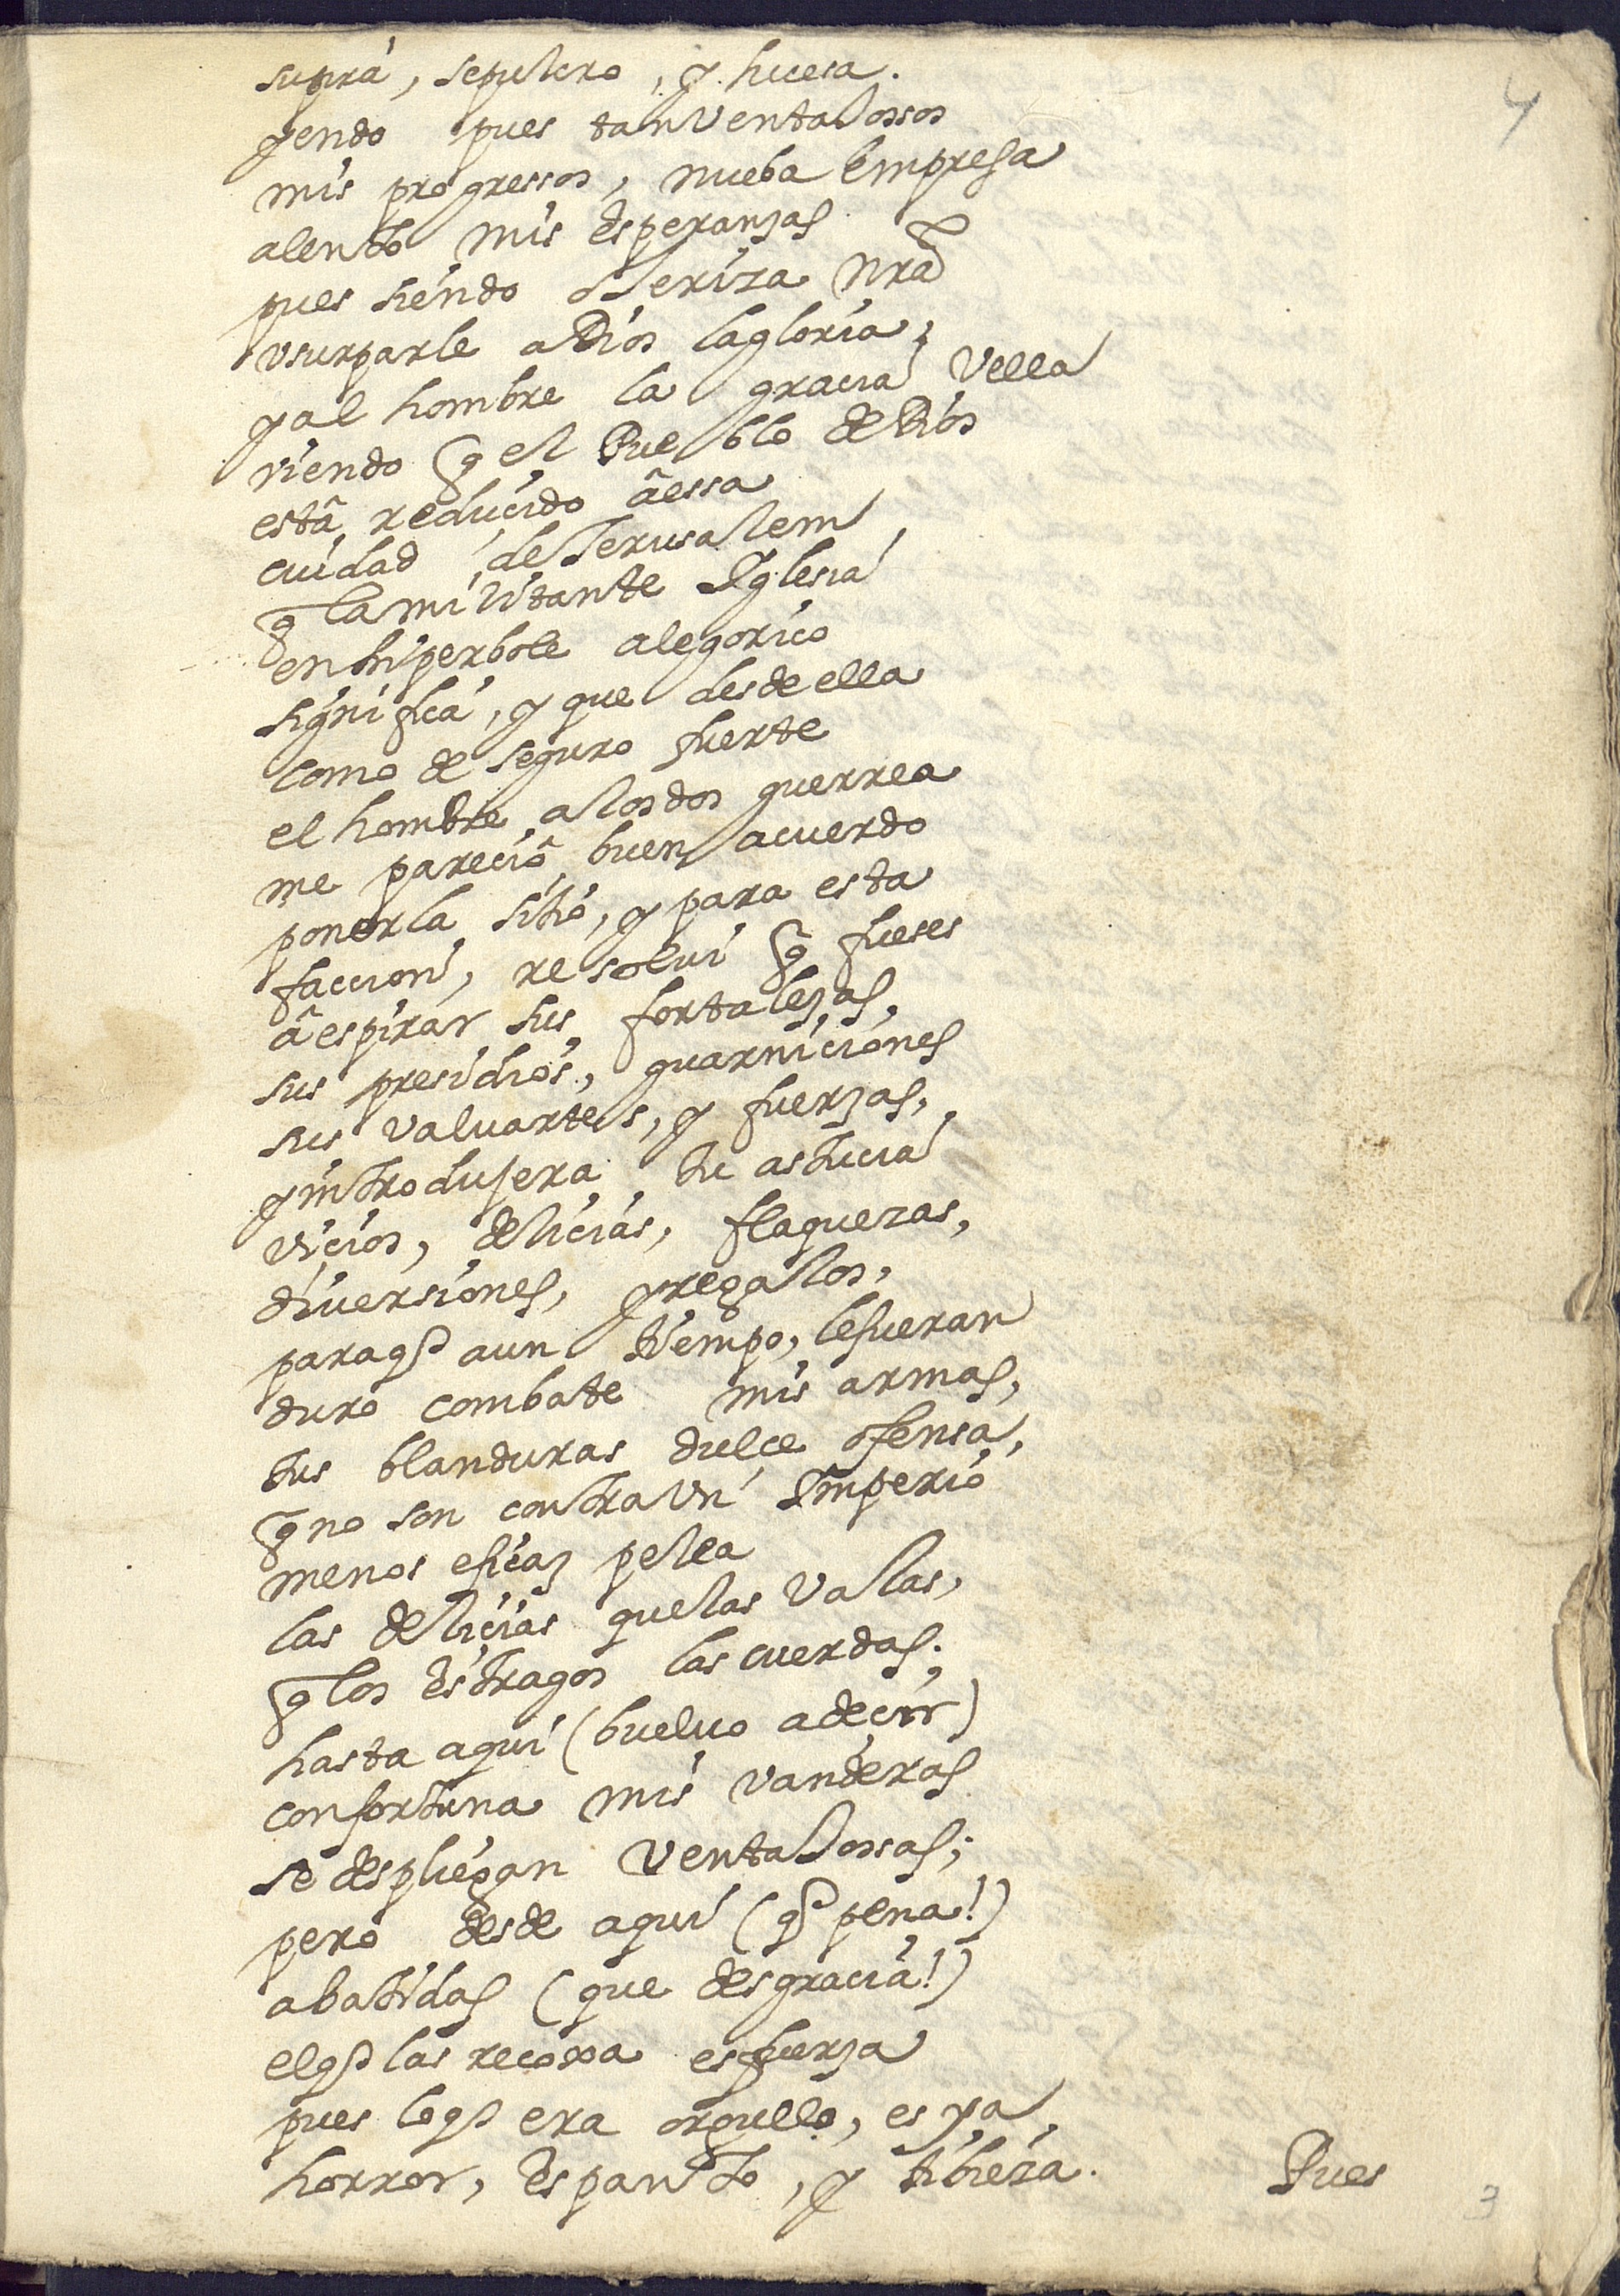 4
supra, sepulcro, y huesa.
yendo pues tan ventaJossos
mis progressos, nueba Empresa
alentò mis esperanzas
pues siendo ojeriza nrã
vsurparle a Dios la gloria,
y al hombre la gracia Vella
viendo q̃ el Pueblo de Dios
estâ reducido â essa
ciudad de Jerusalem,
q̃ la militante Iglesia
en hiperbole alegorico
significa, y que desde ella
como de seguro fuerte
el hombre a los dos guerrea
me pareciô buen acuerdo
ponerla sitio, y para esta
faccion, resolui q̃ fueses
â espirar sus fortalezas,
sus presidios, guarniciones
sus valuartes, y fuerzas,
y introdujera tu astucia
vicios, delicias, flaquezas,
diuersiones, y regalos,
para q̃ aun tiempo, le fueran
duro combate mis armas,
tus blanduras dulce ofensa,
q̃ no son contra Vn Imperio
menos eficaz pelea
las delicias que las Valas,
q̃ los Estragos las cuerdas.
hasta aqui (buelvo a decir)
con fortuna mis vanderas
se despliegan VentaJossas;
pero desde aqui (q̃ pena!)
abatidas (que desgracia!)
el q̃ las recoxa es fuerza
pues lo q̃ era orgullo, es ya,
horror, Espanto, y tibieza.
Pues
3